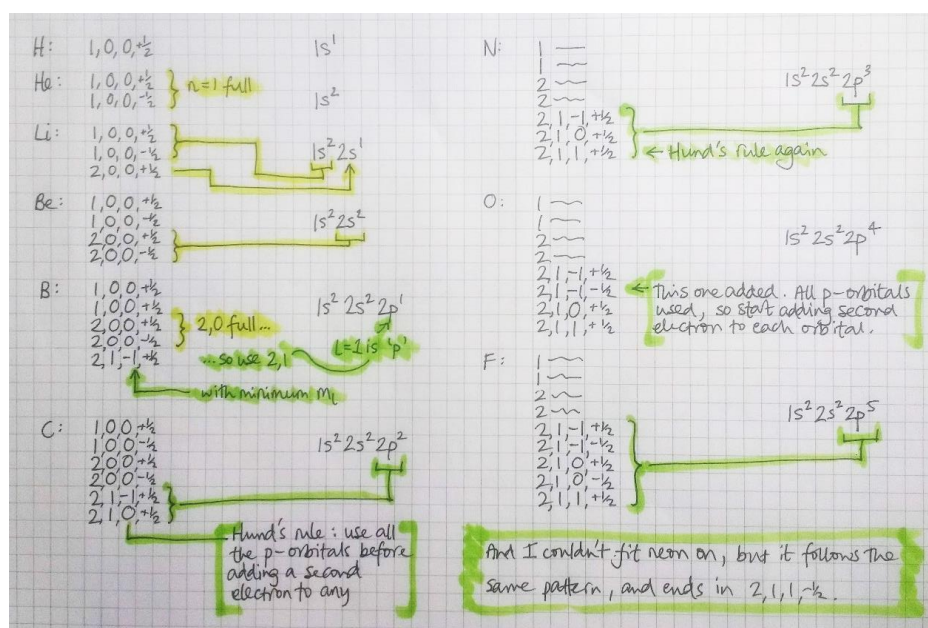 H: 1, 0, 0, +½ 1s¹
He: 1, 0, 0, +½
1, 0, 0, -½
n=1 full
1s²
Li: 1, 0, 0, +½
1, 0, 0, -½
2, 0, 0, +½
1s² 2s¹
Be: 1, 0, 0, +½
1, 0, 0, -½
2, 0, 0, +½
2, 0, 0, -½
1s² 2s²
B: 1, 0, 0, +½
1, 0, 0, +½
2, 0, 0, +½
2, 0, 0, -½
2, 1, -1, +½
1s² 2s² 2p¹
2,0 full...
...so use 2,1
L=1 is 'p'
with minimum mₗ
C: 1, 0, 0, +½
1, 0, 0, -½
2, 0, 0, +½
2, 0, 0, -½
2, 1, -1, +½
2, 1, 0, +½
1s² 2s² 2p²
Hund's rule: use all
the p-orbitals before
adding a second
electron to any
N: 1
1
2
2
2, 1, -1, +½
2, 1, 0, +½
2, 1, 1, +½
1s² 2s² 2p³
← Hund's rule again
O: 1
1
2
2
2, 1, -1, +½
2, 1, -1, -½
2, 1, 0, +½
2, 1, 1, +½
1s² 2s² 2p⁴
← This one added. All p-orbitals
used, so start adding second
electron to each orbital.
F: 1
1
2
2
2, 1, -1, +½
2, 1, -1, -½
2, 1, 0, +½
2, 1, 0, -½
2, 1, 1, +½
1s² 2s² 2p⁵
And I couldn't fit neon on, but it follows the
same pattern, and ends in 2, 1, 1, -½.